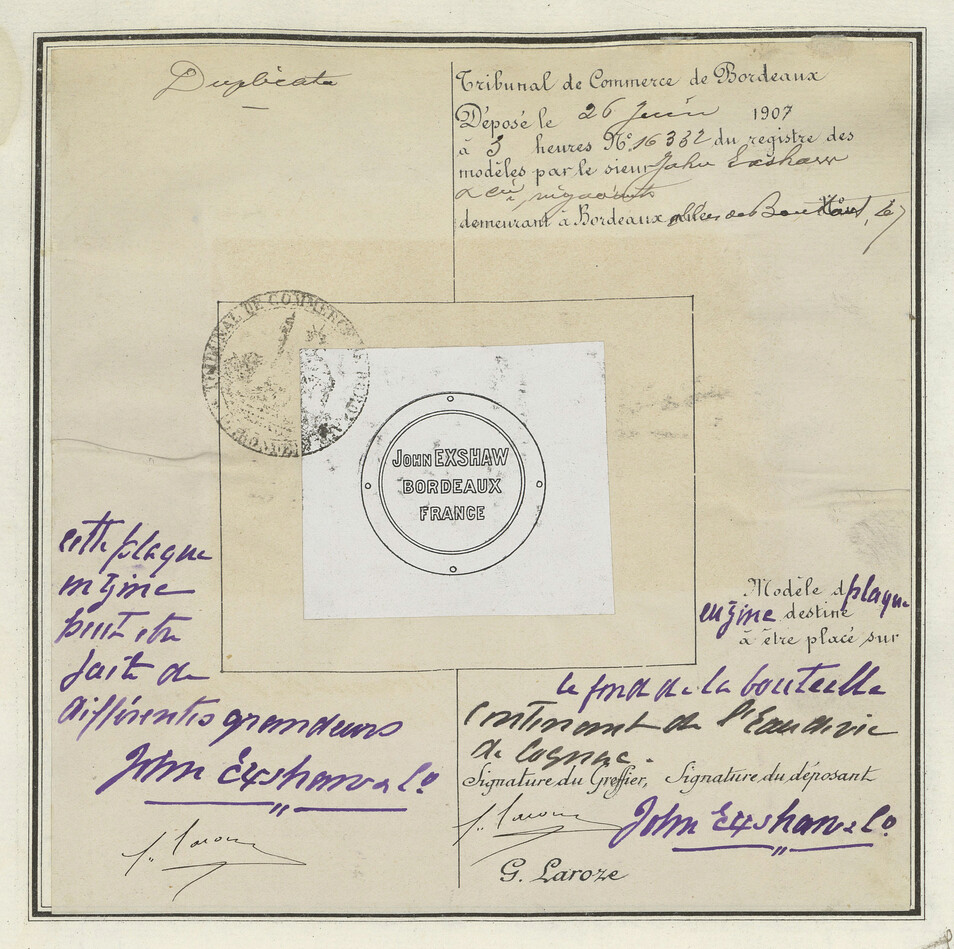 Duplicata
Tribunal de Commerce de Bordeaux
Déposé le 26 Juin 1907
à 3 heures No. 16332 du registre des
modèles par le sieur John Exshaw
& Cie, négociants
demeurant à Bordeaux allées de Boutaut, 67
TRIBUNAL DE COMMERCE
JOHN EXSHAW
BORDEAUX
FRANCE
cette plaque
en zinc
peut etre
faite de
différentes grandeurs
John Exshaw & Co
Modèle d plaque
en zinc destiné
à être placé sur
le fond de la bouteille
contenant de l'Eau de vie
de Cognac.
Signature du Greffier, Signature du déposant
John Exshaw & Co
G. Laroze